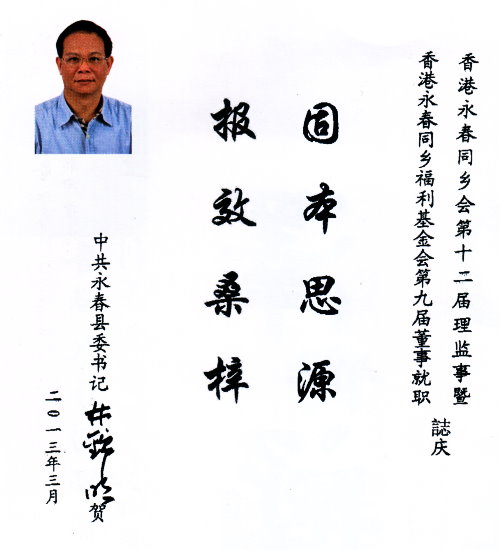 香港永春同乡会第十二届理监事暨
香港永春同乡福利基金会第九届董事就职
誌庆
固本思源
报效桑梓
中共永春县委书记
林锦明 贺
二〇一三年三月